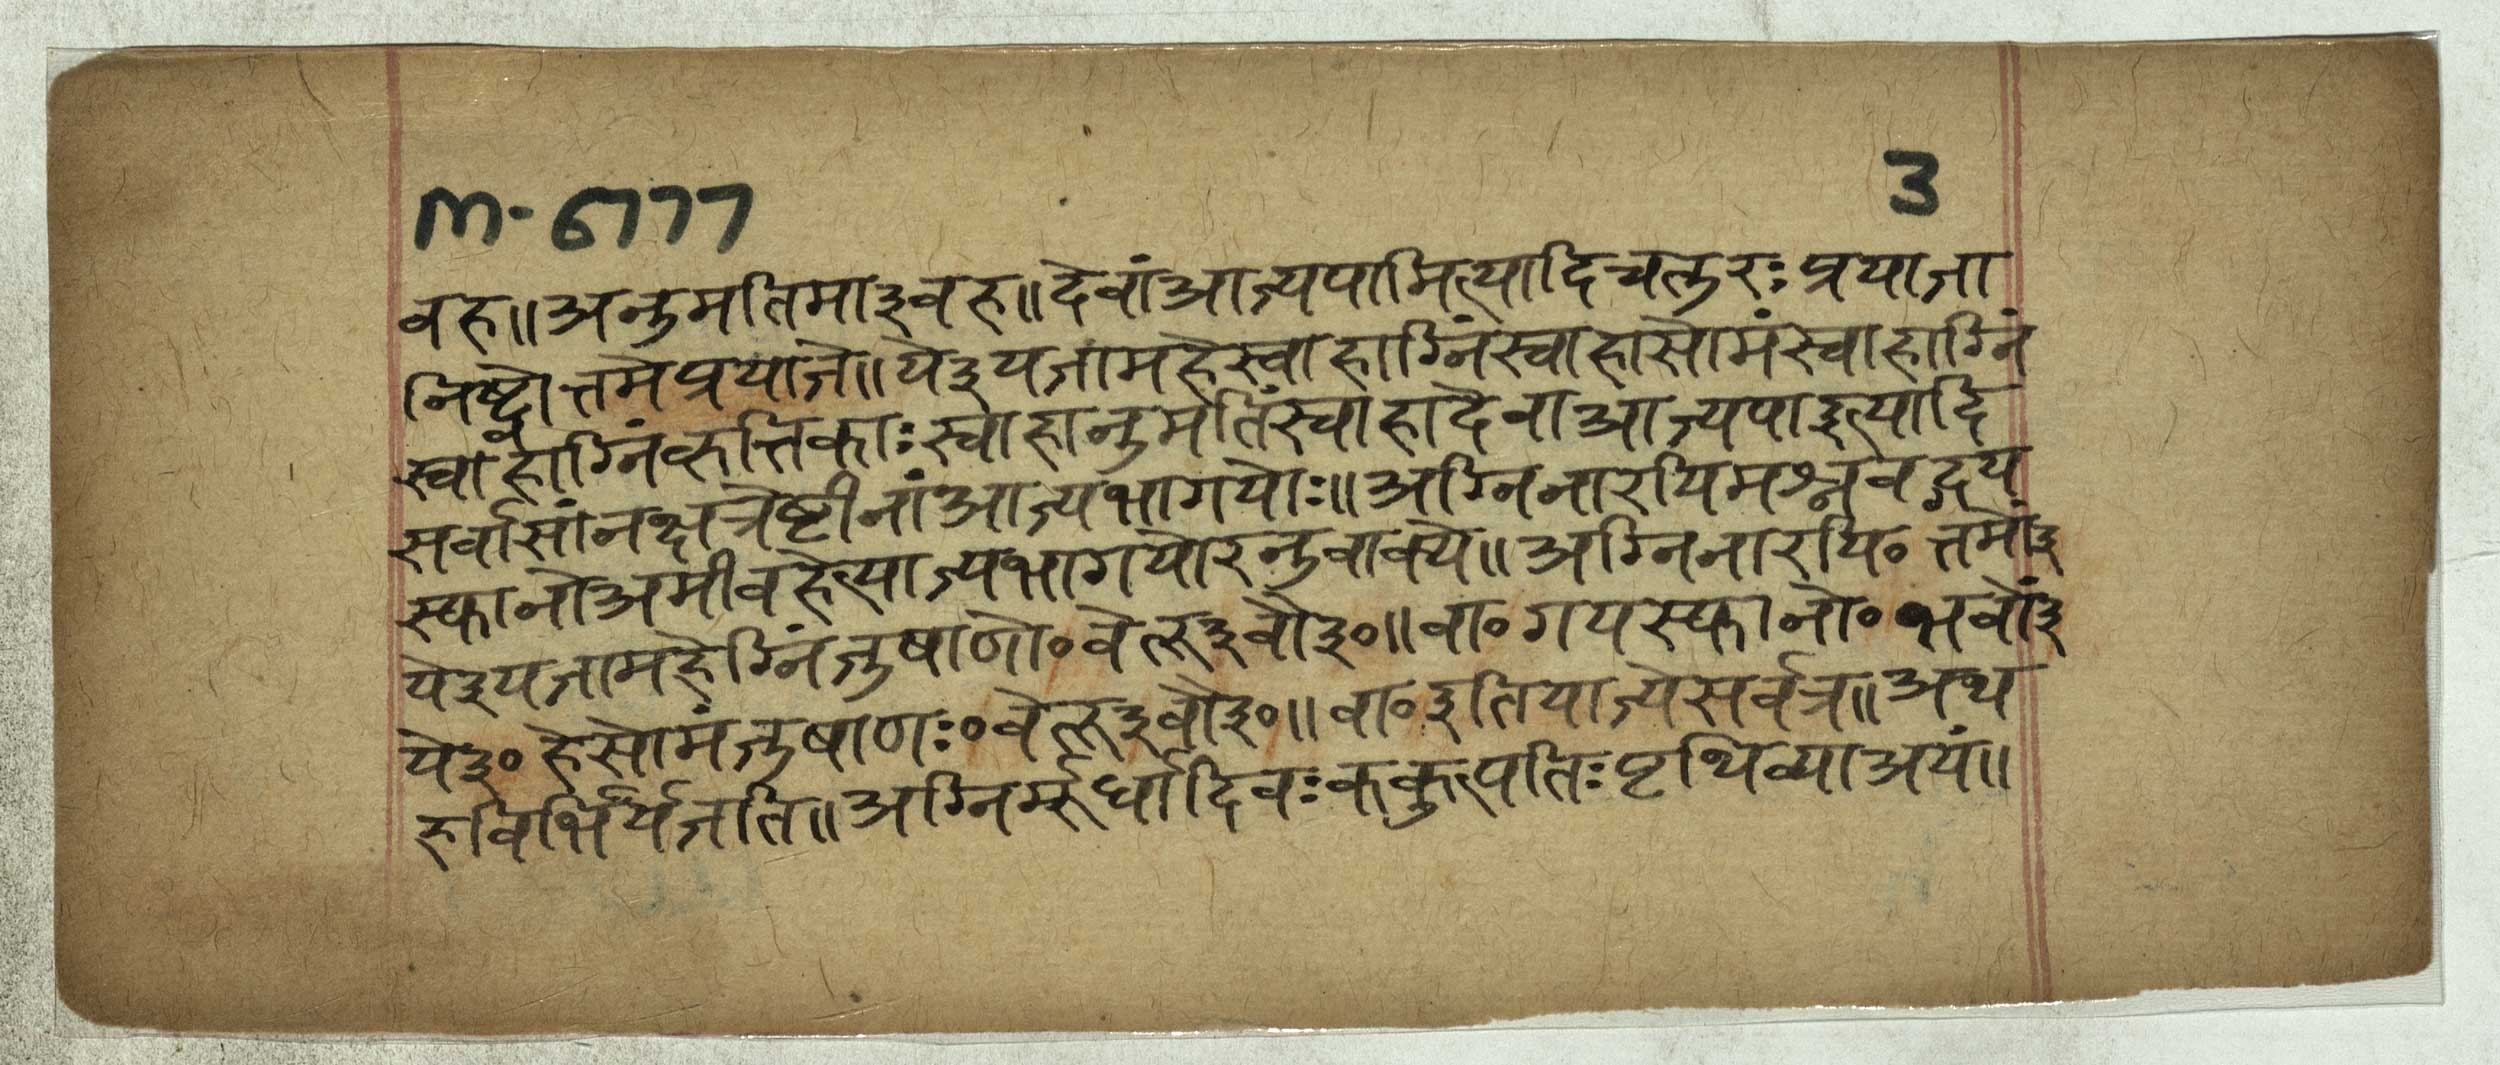 M-6777
3
वह॥अनुमतिमा३वह॥देवांआज्यपामित्यादिचतुरःप्रयाजा
निष्ट्वोत्तमेप्रयाजे॥ये३यजामहेस्वाहाग्निंस्वाहासोमंस्वाहाग्निं
स्वाहाग्निंकृत्तिकाःस्वाहानुमतिंस्वाहादेवाआज्यपाइत्यादि
सर्वासांनक्षत्रेष्टीनांआज्यभागयोः॥अग्निनारयिमश्नवद्गय
स्फानोअमीवहेत्याज्यभागयोरनुवाक्ये॥अग्निनारयि०त्तमों३
ये३यजामहेग्निंजुषाणो०वेत्ह३वौ३०॥वा०गयस्फानो०भवों३
ये३०हेसोमंजुषाणः०वेत्ह३वौ३०॥वा०इतियाज्येसर्वत्र॥अथ
हविर्भिर्यजति॥अग्निर्मूर्धादिवःककुत्पतिःपृथिव्याअयं॥